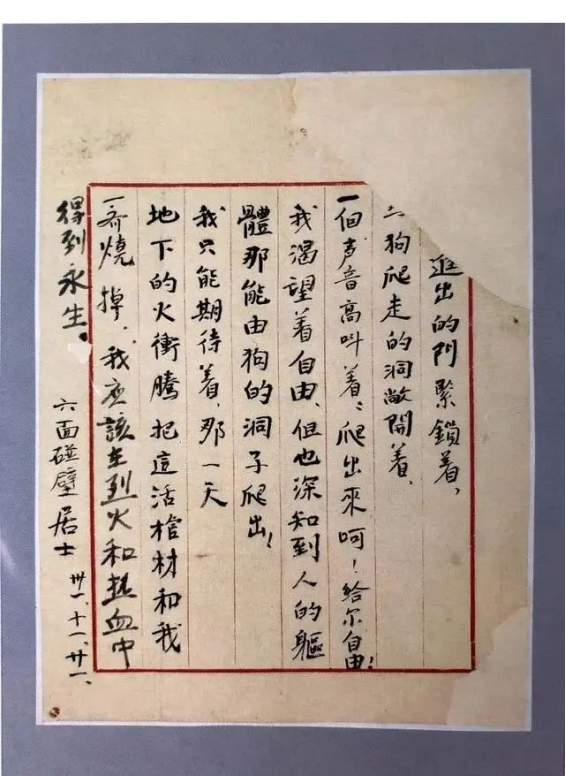 進出的门緊鎖着、
狗爬走的洞敞開着、
一個声音高叫着：爬出來呵！給尔自由！
我渴望着自由、但也深知到人的軀
體那能由狗的洞子爬出！
我只能期待着、那一天
地下的火衝騰把這活棺材和我
一齐燒掉、我应該在烈火和热血中
得到永生。
六面碰壁居士 卅一、十一、廿一、